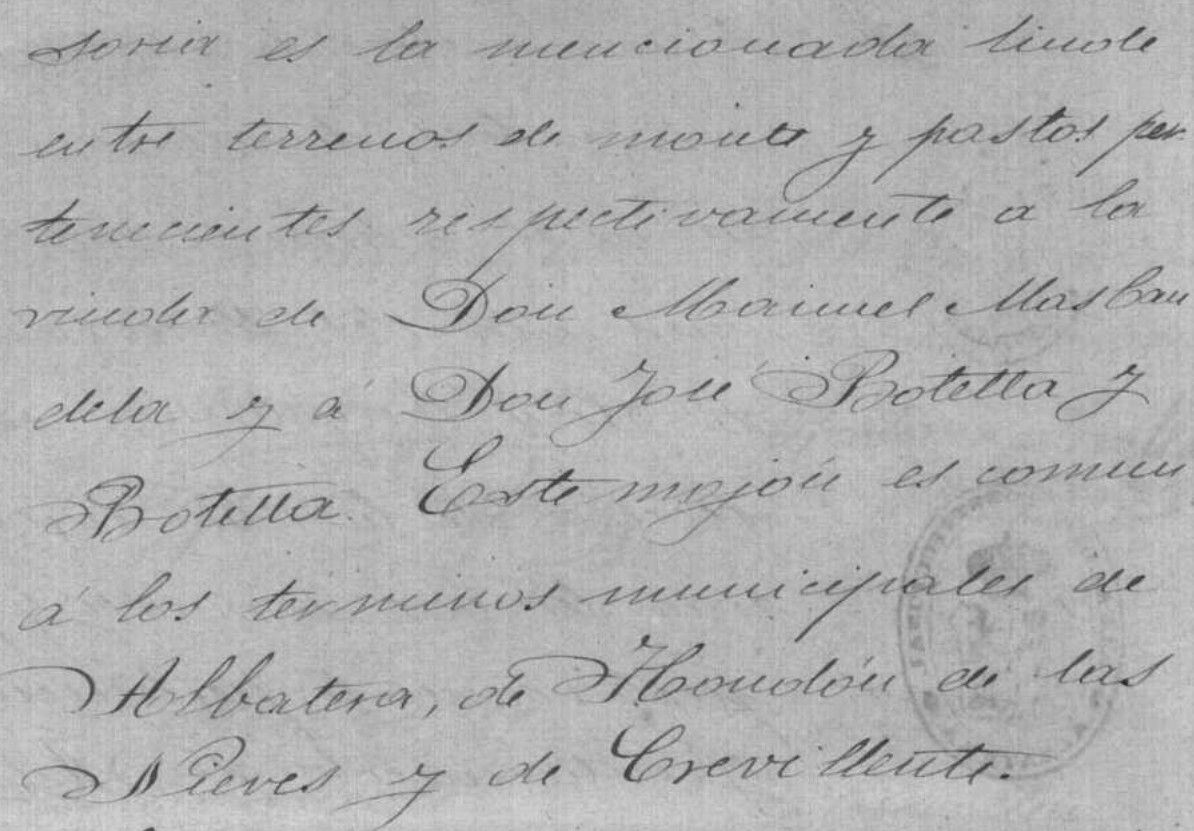 soria es la mencionada linde
entre terrenos de monte y pastos per
tenecientes respectivamente a la
viuda de Don Manuel Mas Can
dela y á Don José Botella y
Botella. Este mojón es comun
á los terminos municipales de
Albatera, de Hondón de las
Nieves y de Crevillente.